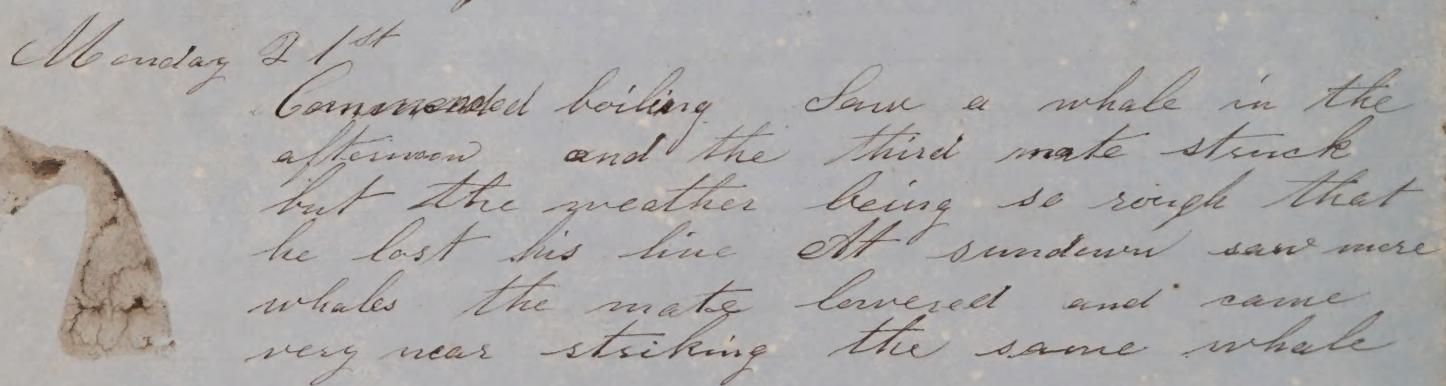 Monday 21st
Commended boiling Saw a whale in the
afternoon and the third mate struck
but the weather being so rough that
he lost his line At sundown saw more
whales the mate lowered and came
very near striking the same whale